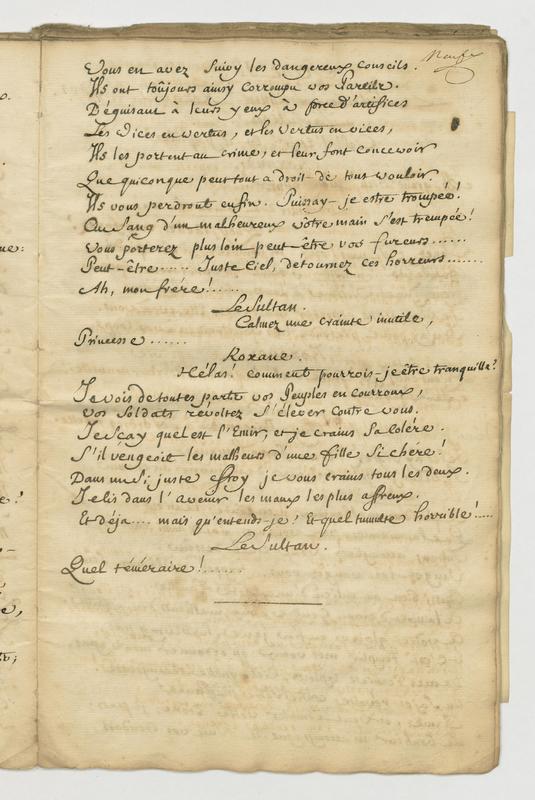 Vous en avez Suivy les dangereux Conseils.
Ils ont toûjours ainsy Corrompu vos Pareils.
Déguisant à leurs yeux à force D'artifices
Les Vices en vertus, et les Vertus en vices,
Ils les portent au Crime, et leur font Concevoir
Que quiconque peut tout a droit de tout vouloir.
Ils vous perdront enfin. Puissay-je estre trompée!
Au Sang d'un malheureux vôtre main S'est trempée!
Vous porterez plus loin peut-être vos fureurs......
Peut-être...... Juste Ciel, détournez ces horreurs.......
Ah, mon frére!......
Le Sultan.
Calmez une crainte inutile,
Princesse......
Roxane.
Hélas! Comment pourrois-je être tranquille?
Je vois de toutes parts vos Peuples en Courroux,
Vos Soldats revoltez S'élever Contre vous.
Je Sçay quel est l'Emir, et je crains Sa Colére.
S'il vengeoit les malheurs d'une fille Si chére!
Dans un Si juste effroy je vous crains tous les deux.
Je lis dans l'avenir les maux les plus affreux.
Et déja.... mais qu'entends-je! Et quel tumulte horrible!.....
Le Sultan.
Quel téméraire!.......